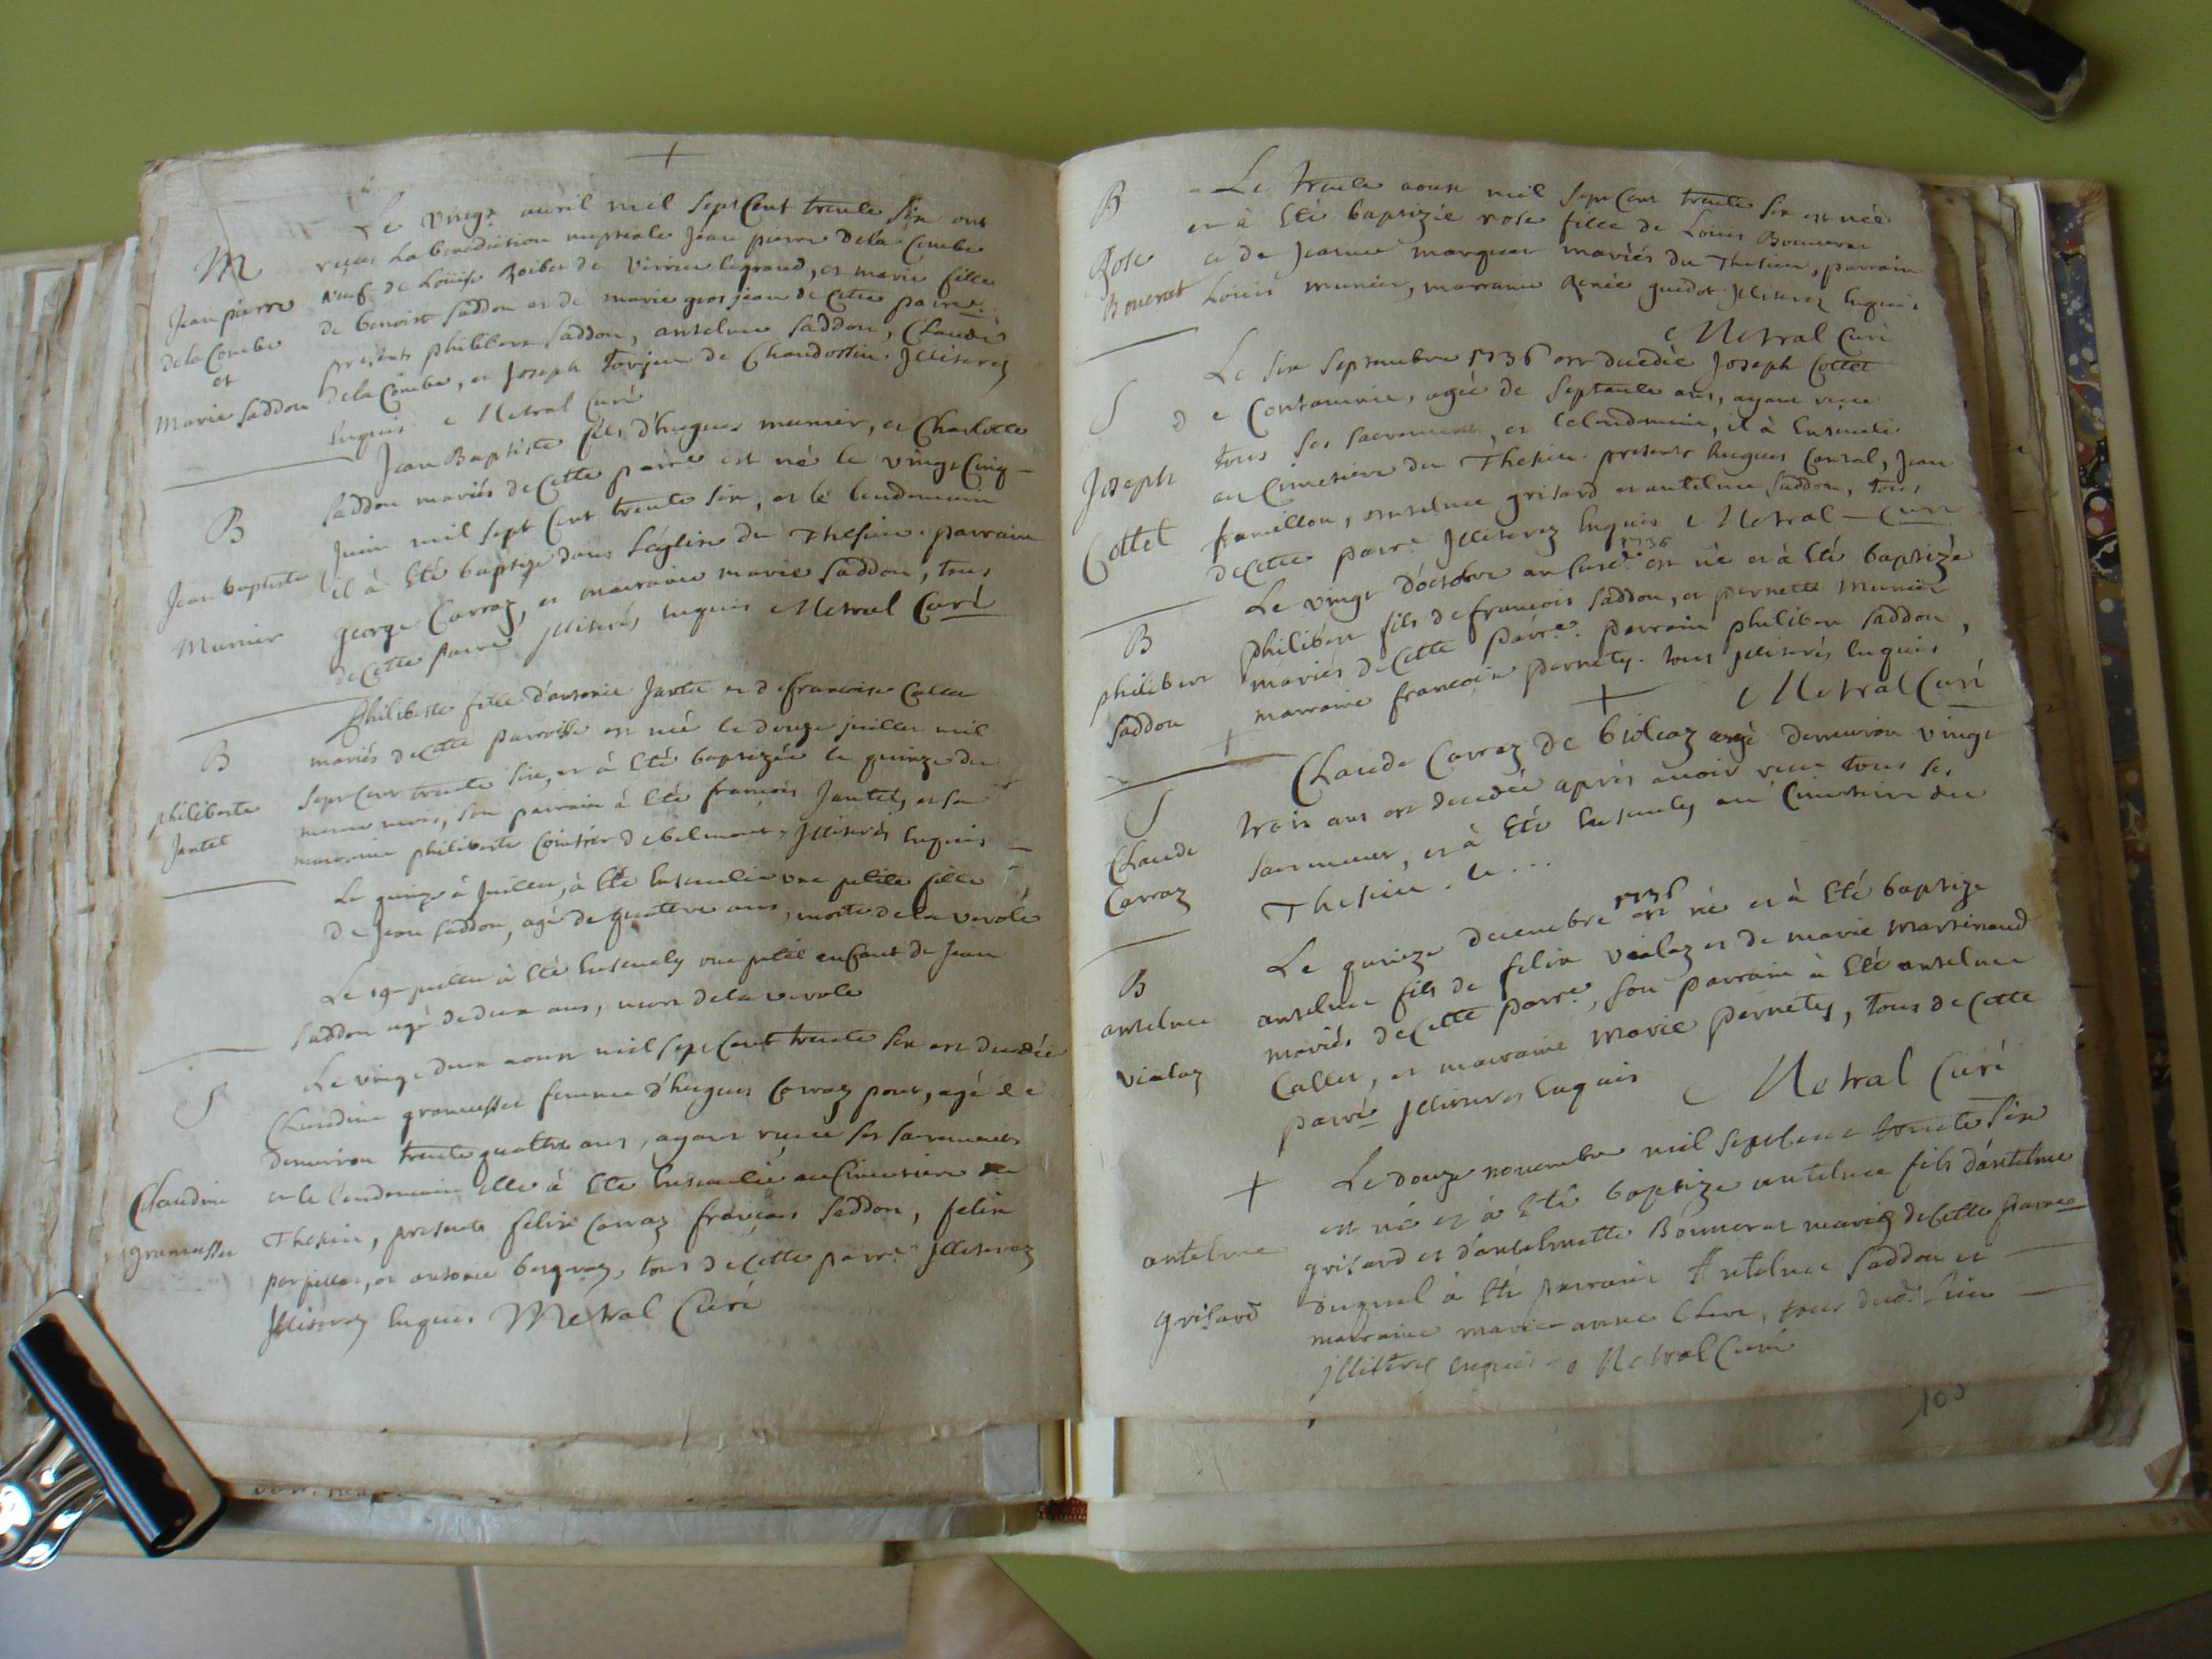 M
Jean pierre
de la Combe
et
Marie Saddon
Le vingt auril mil sept Cent trente six ont
reçus La benediction nuptiale Jean pierre De la Combe
veuf de Loüise de Virieu legrand, et marie fille
de benoist Saddon et de marie gros jean de Cette parre.
presents philibert Saddon, antelme Saddon, Claude
De la Combe, et Joseph de Chandossin. Jlliterez
enquis Metral Curé
B
Jean baptiste
Munier
Jean Baptiste fils d'hugues munier, et Charlotte
Saddon mariés de Cette parre est né le vingt Cinq
Juin mil sept Cent trente six, et le lendemain
il à été baptizé dans L'eglise du Thesieu. parrain
george Carraz, et marraine marie Saddon, tous
de Cette parre Jlliterés enquis Metral Curé
B
philiberte
Jantet
Philiberte fille d'antoine Jantet et de francoise Callet
mariés de Cette parroisse est née le douze juillet mil
sept Cent trente six, et à été baptizée le quinze du
meme mois, son parrain à été françois Jantet, et sa
marraine philiberte de belmont, Jlliterés enquis
Le quinze à Juillet, à été ensevelie une petite fille
De Jean Saddon, agé de quattre ans, morte de la verole
Le 19 juillet à été ensevely un petit enfant de Jean
Saddon agé de deux ans, mort de la verole
S
Claudine
Le vingt deux aoust mil sept Cent trente six est decedée
Claudine femme d'hugues Carraz pour, agé de
denuiron trente quattre ans, ayant recue ses sacrements
et le lendemain elle à été ensevelie au Cimetiere du
Thesieu, presents felix Carraz françois Saddon, felix
parpillon, et antoine tous de Cette parre Jlliterez
Jlliterez enquis Metral Curé
B
Rose
Bonerat
Le trente aoust mil sept Cent trente six est née
et à été baptizée rose fille de Loüis Bonnerat
et de Jeanne marquet mariés du Thesieu, parrain
Loüis munier, marraine Renée guedot Jlliterez enquis
Metral Curé
S
Joseph
Cottet
Le six Septembre 1736 est decedé Joseph Cottet
de Contamine, agé de septante ans, ayant reçu
tous ses sacrements, et le lendemain, il à enseveli
au Cimetiere du Thesieu. presents hugues Jean
framillon, antelme grisard et antelme Saddon, tous
de Cette parre Jlliterez enquis Metral Curé
B
philibert
Saddon
Le vingt d'octobre an susd. 1736 est né et à été baptizé
philibert fils de francois Saddon, et pernette Munier
mariés de Cette parre. parrain philibert Saddon,
marraine francoise pernety. tous Jlliterés enquis
Metral Curé
S
Claude
Carraz
Claude Carraz de bioleaz agé denuiron vingt
trois ans est decedé aprés avoir recu tous ses
sacrements, et à été ensevely au Cimetiere du
Thesieu. le ...
B
antelme
vialaz
Le quinze decembre 1736 est né et à été baptize
antelme fils de felix vialaz et de marie Martinand
mariés de Cette parre, son parrain à été antelme
Callet, et marraine marie pernety, tous de Cette
parre Jlliterés enquis Metral Curé
antelme
grisard
Le douze novembre mil sept Cent trente six
est né et à été baptize antelme fils d'antelme
grisard et d'antelmette Bonnerat mariés de Cette parre
duquel à été parrain Antelme Saddon et
marraine marie anne Clerc, tous dud. lieu
Jlliterés enquis Metral Curé
100